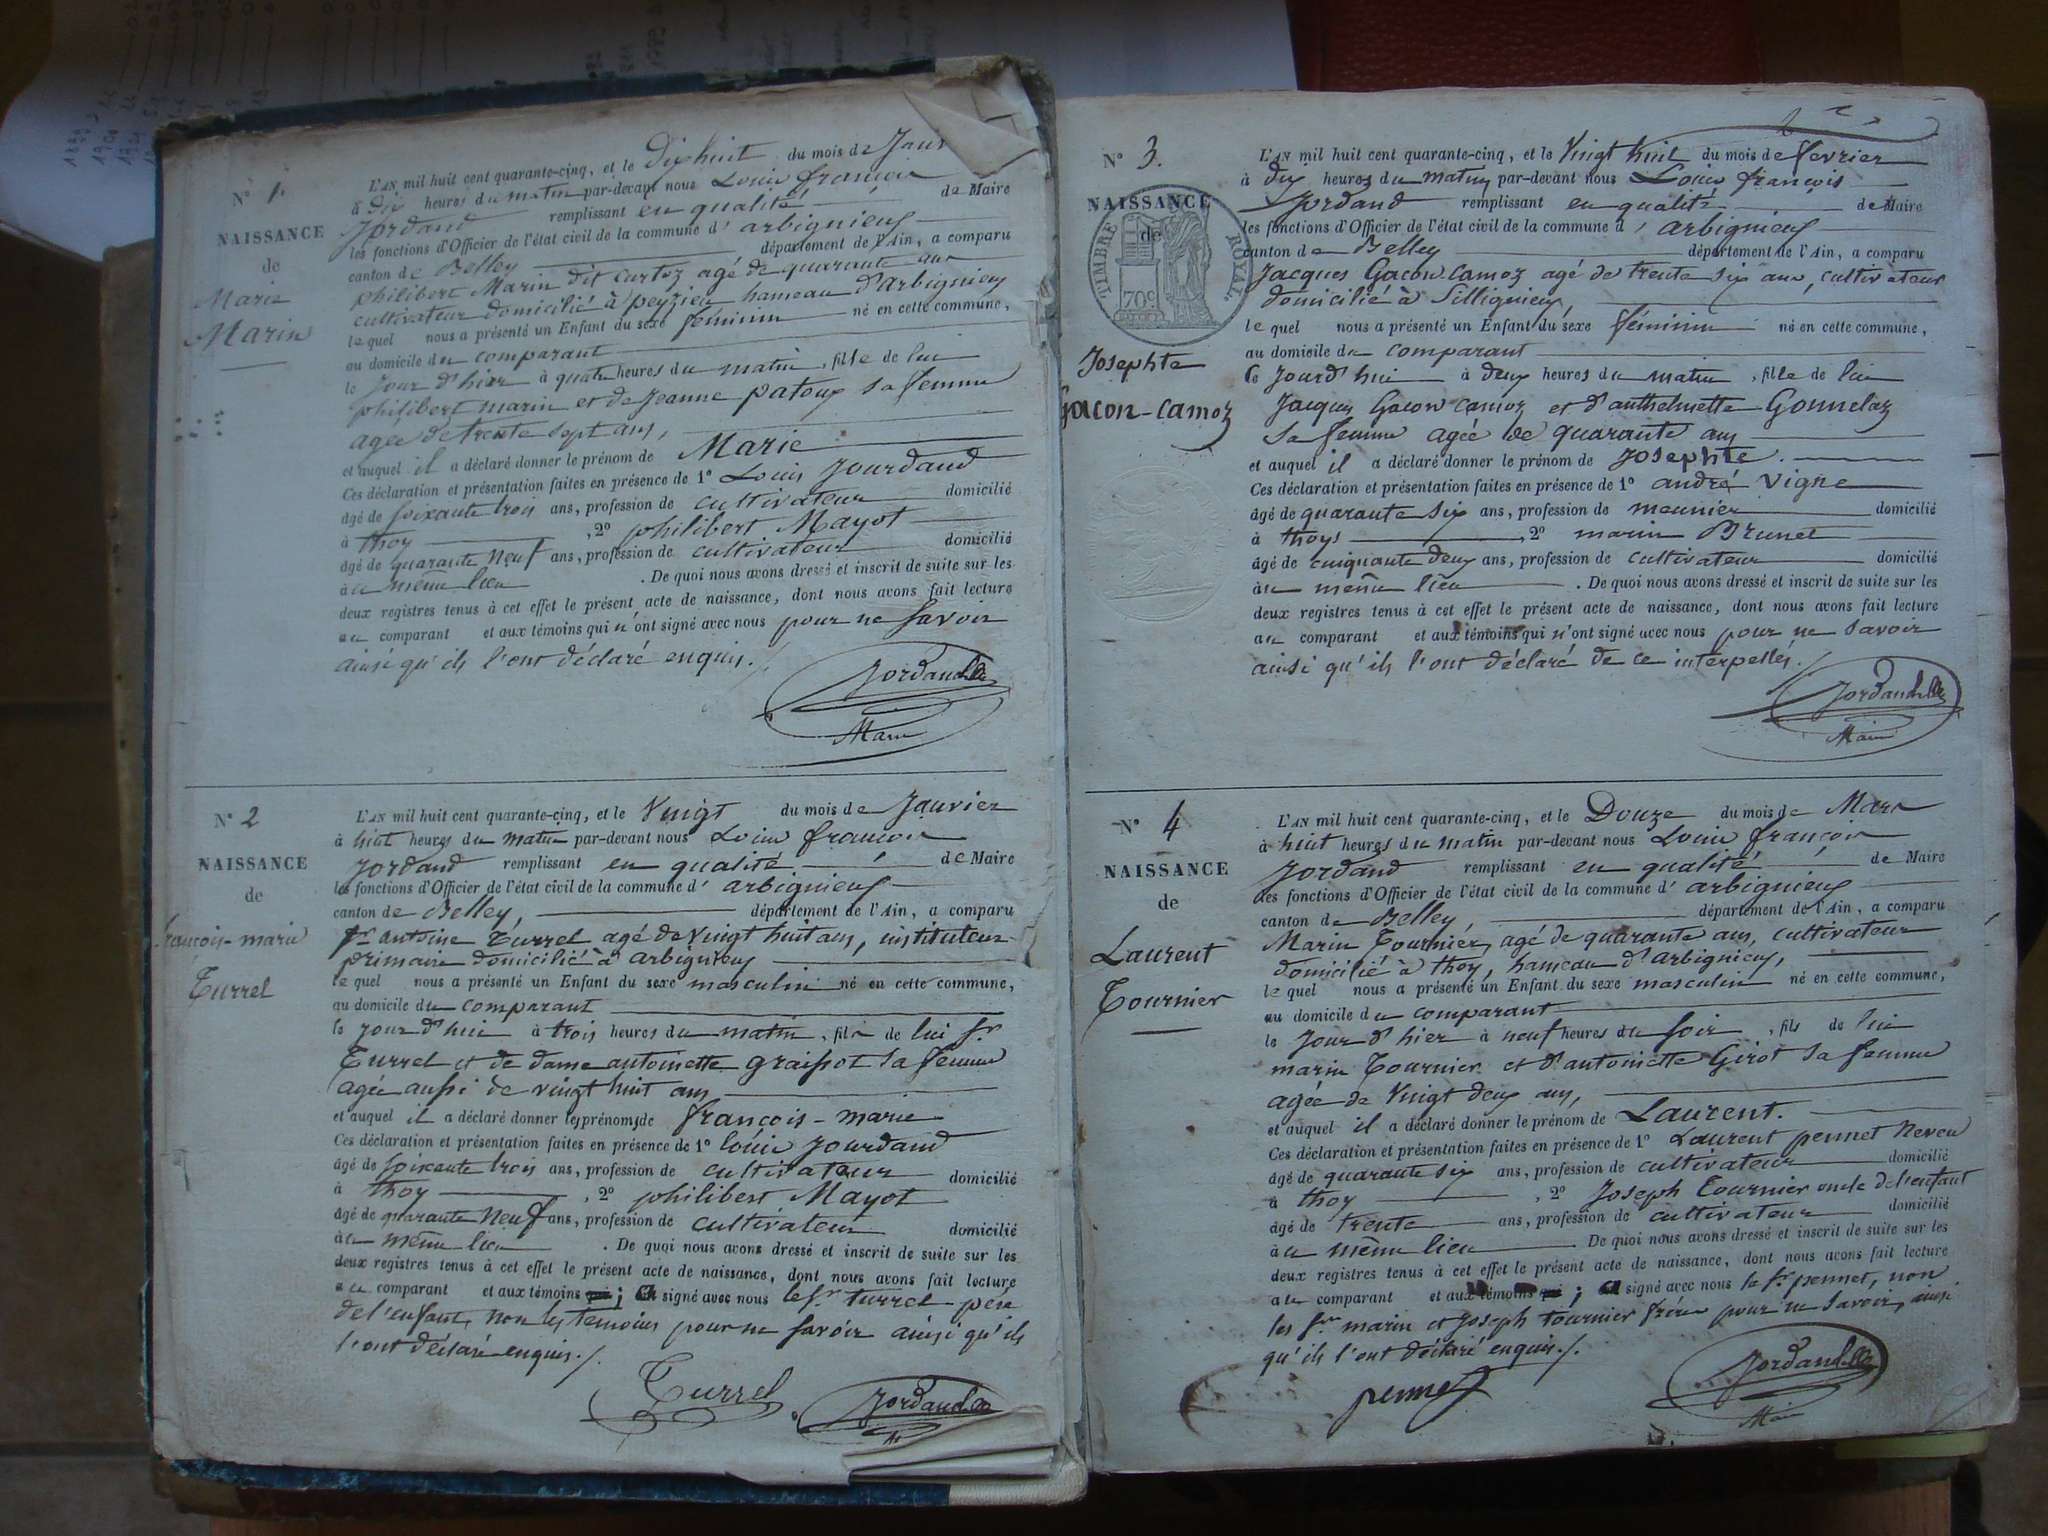 N° 1.
NAISSANCE
de
Marie
Marin
L'AN mil huit cent quarante-cinq, et le Dix huit du mois de Janv
à dix heures du matin par-devant nous Louis françois
Jordand remplissant en qualité de Maire
les fonctions d'Officier de l'état civil de la commune d' arbignieux
canton de Belley département de l'Ain, a comparu
philibert Marin dit Curtoz agé de quarante ans
cultivateur domicilié à peyzieu hameau d'arbignieux
le quel nous a présenté un Enfant du sexe féminin né en cette commune,
au domicile du comparant
le jour d'hier à quatre heures du matin, fille de lui
philibert marin et de jeanne patoux sa femme
agée de trente sept ans,
et auquel il a déclaré donner le prénom de Marie
Ces déclaration et présentation faites en présence de 1° Louis Jourdand
âgé de soixante trois ans, profession de cultivateur domicilié
à thoy , 2° philibert Mayot
âgé de quarante neuf ans, profession de cultivateur domicilié
à u même lieu . De quoi nous avons dressé et inscrit de suite sur les
deux registres tenus à cet effet le présent acte de naissance, dont nous avons fait lecture
au comparant et aux témoins qui n'ont signé avec nous pour ne savoir
ainsi qu'ils l'ont déclaré enquis./.
Jordand
Maire
N° 2
NAISSANCE
de
françois-marie
Turrel
L'AN mil huit cent quarante-cinq, et le Vingt du mois de Janvier
à huit heures du matin par-devant nous Louis françois
Jordand remplissant en qualité de Maire
les fonctions d'Officier de l'état civil de la commune d' arbignieux
canton de Belley, département de l'Ain, a comparu
Sr antoine Turrel agé de vingt huit ans, instituteur
primaire domicilié à arbignieux
le quel nous a présenté un Enfant du sexe masculin né en cette commune,
au domicile du comparant
le jour d'hui à trois heures du matin, fils de lui Sr
Turrel et de dame antoinette graissot sa femme
agée aussi de vingt huit ans
et auquel il a déclaré donner les prénoms de françois-marie
Ces déclaration et présentation faites en présence de 1° louis Jourdand
âgé de soixante trois ans, profession de cultivateur domicilié
à thoy , 2° philibert Mayot
âgé de quarante neuf ans, profession de cultivateur domicilié
à u même lieu . De quoi nous avons dressé et inscrit de suite sur les
deux registres tenus à cet effet le présent acte de naissance, dont nous avons fait lecture
au comparant et aux témoins ; signé avec nous le Sr turrel père
de l'enfant, non les temoins pour ne savoir ainsi qu'ils
l'ont déclaré enquis./.
Turrel
Jordand
N° 3.
NAISSANCE
de
TIMBRE ROYAL
70c
Josephte
Gacon-Camoz
L'AN mil huit cent quarante-cinq, et le Vingt huit du mois de fevrier
à dix heures du matin par-devant nous Louis françois
Jordand remplissant en qualité de Maire
les fonctions d'Officier de l'état civil de la commune d' arbignieux
canton de Belley département de l'Ain, a comparu
Jacques Gacon Camoz agé de trente six ans, cultivateur
domicilié à Sillignieux,
le quel nous a présenté un Enfant du sexe féminin né en cette commune,
au domicile du comparant
le jourd'hui à deux heures du matin, fille de lui
Jacques Gacon Camoz et d'anthelmette Gonnelaz
sa femme agée de quarante ans
et auquel il a déclaré donner le prénom de Josephte.
Ces déclaration et présentation faites en présence de 1° andré vigne
âgé de quarante six ans, profession de meunier domicilié
à thoys , 2° marin Brunet
âgé de cinquante deux ans, profession de cultivateur domicilié
à u même lieu . De quoi nous avons dressé et inscrit de suite sur les
deux registres tenus à cet effet le présent acte de naissance, dont nous avons fait lecture
au comparant et aux témoins qui n'ont signé avec nous pour ne savoir
ainsi qu'ils l'ont déclaré de ce interpellés./.
Jordand
Maire
N° 4
NAISSANCE
de
Laurent
Tournier
L'AN mil huit cent quarante-cinq, et le Douze du mois de Mars
à huit heures du matin par-devant nous Louis françois
Jordand remplissant en qualité de Maire
les fonctions d'Officier de l'état civil de la commune d' arbignieux
canton de Belley, département de l'Ain, a comparu
Marin Tournier, agé de quarante ans, cultivateur
domicilié à thoy, hameau d'arbignieux,
le quel nous a présenté un Enfant du sexe masculin né en cette commune,
au domicile du comparant
le jour d'hier à neuf heures du soir, fils de lui
marin Tournier et d'antoinette Girot sa femme
agée de vingt deux ans,
et auquel il a déclaré donner le prénom de Laurent.
Ces déclaration et présentation faites en présence de 1° Laurent pennet neveu
âgé de quarante six ans, profession de cultivateur domicilié
à thoy , 2° Joseph Tournier oncle de l'enfant
âgé de trente ans, profession de cultivateur domicilié
à u même lieu De quoi nous avons dressé et inscrit de suite sur les
deux registres tenus à cet effet le présent acte de naissance, dont nous avons fait lecture
au comparant et aux témoins ; signé avec nous le Sr pennet, non
les Srs marin et joseph tournier frères pour ne savoir, ainsi
qu'ils l'ont déclaré enquis./.
pennet
Jordand
Maire